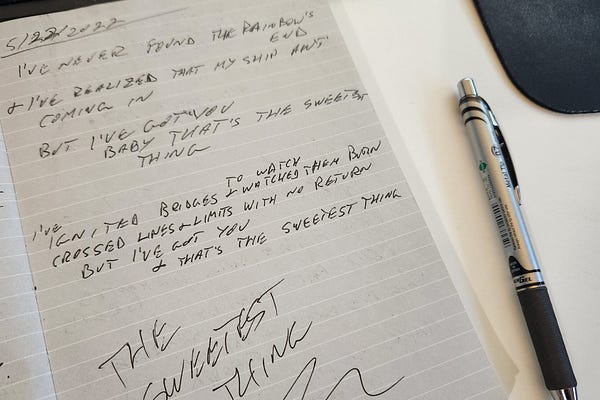 5/22/2022
I'VE NEVER FOUND THE RAINBOW'S
END
& I'VE REALIZED THAT MY SHIP AIN'T
COMING IN
BUT I'VE GOT YOU
BABY THAT'S THE SWEETEST
THING
I'VE TO WATCH
IGNITED BRIDGES & WATCHED THEM BURN
CROSSED LINES & LIMITS WITH NO RETURN
BUT I'VE GOT YOU
& THAT'S THE SWEETEST THING
THE
SWEETEST
THING